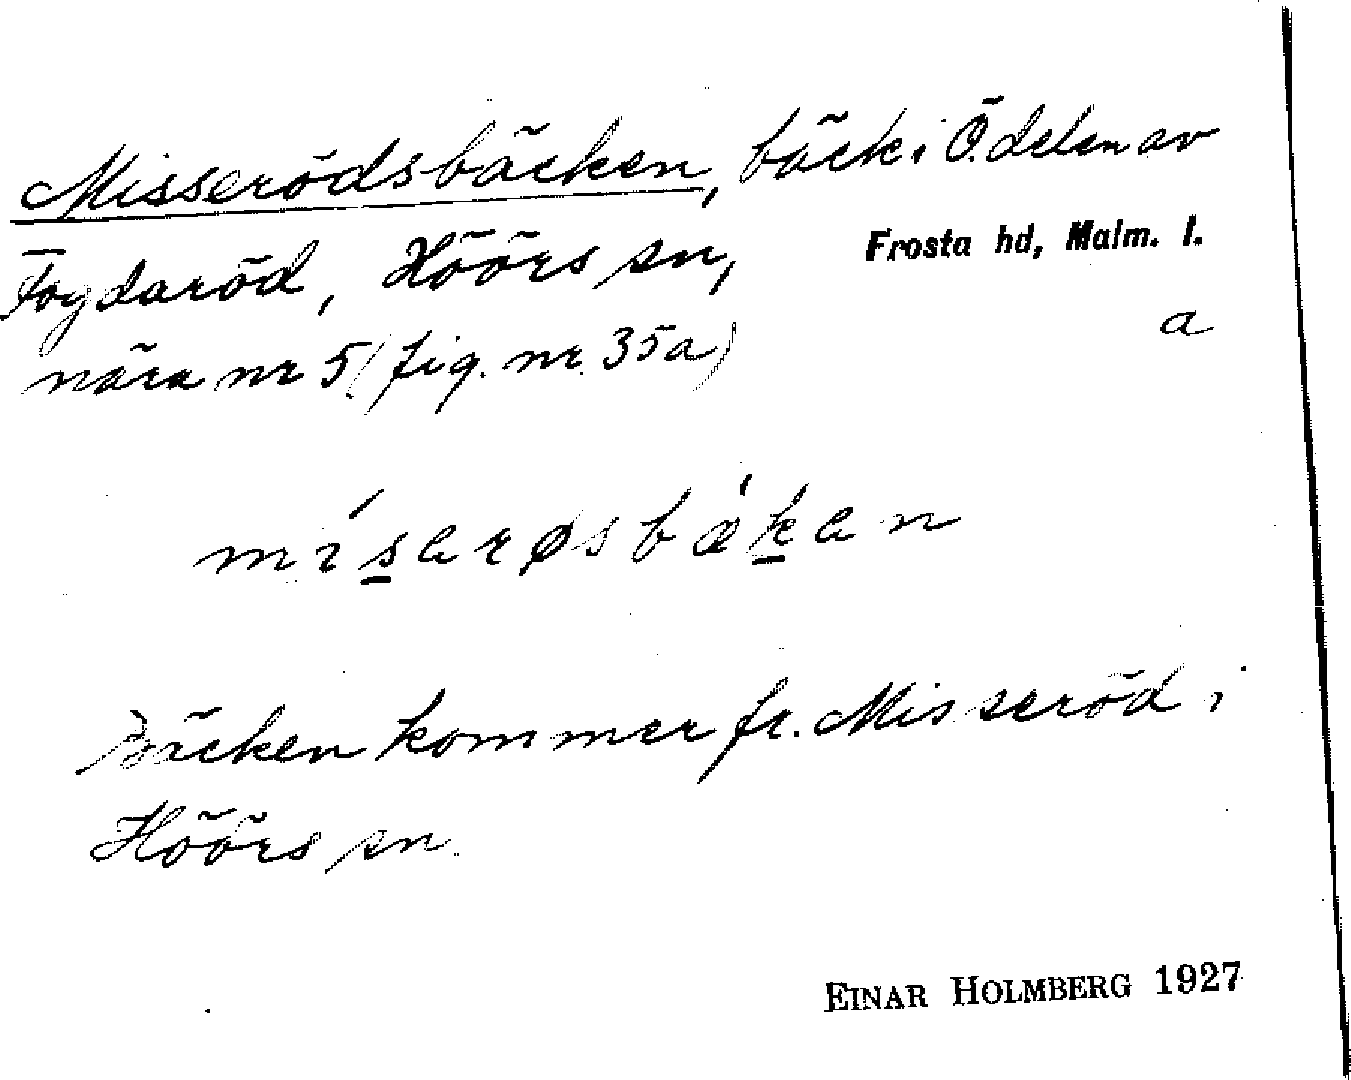 Misserödsbäcken, bäck i Ö. delen av
Fogdaröd, Höörs sn,
Frosta hd, Malm. l.
nära nr 5 (fig. nr. 35a)
a
mísarøsbǽkan
Bäcken kommer fr. Misseröd i
Höörs sn.
EINAR HOLMBERG 1927